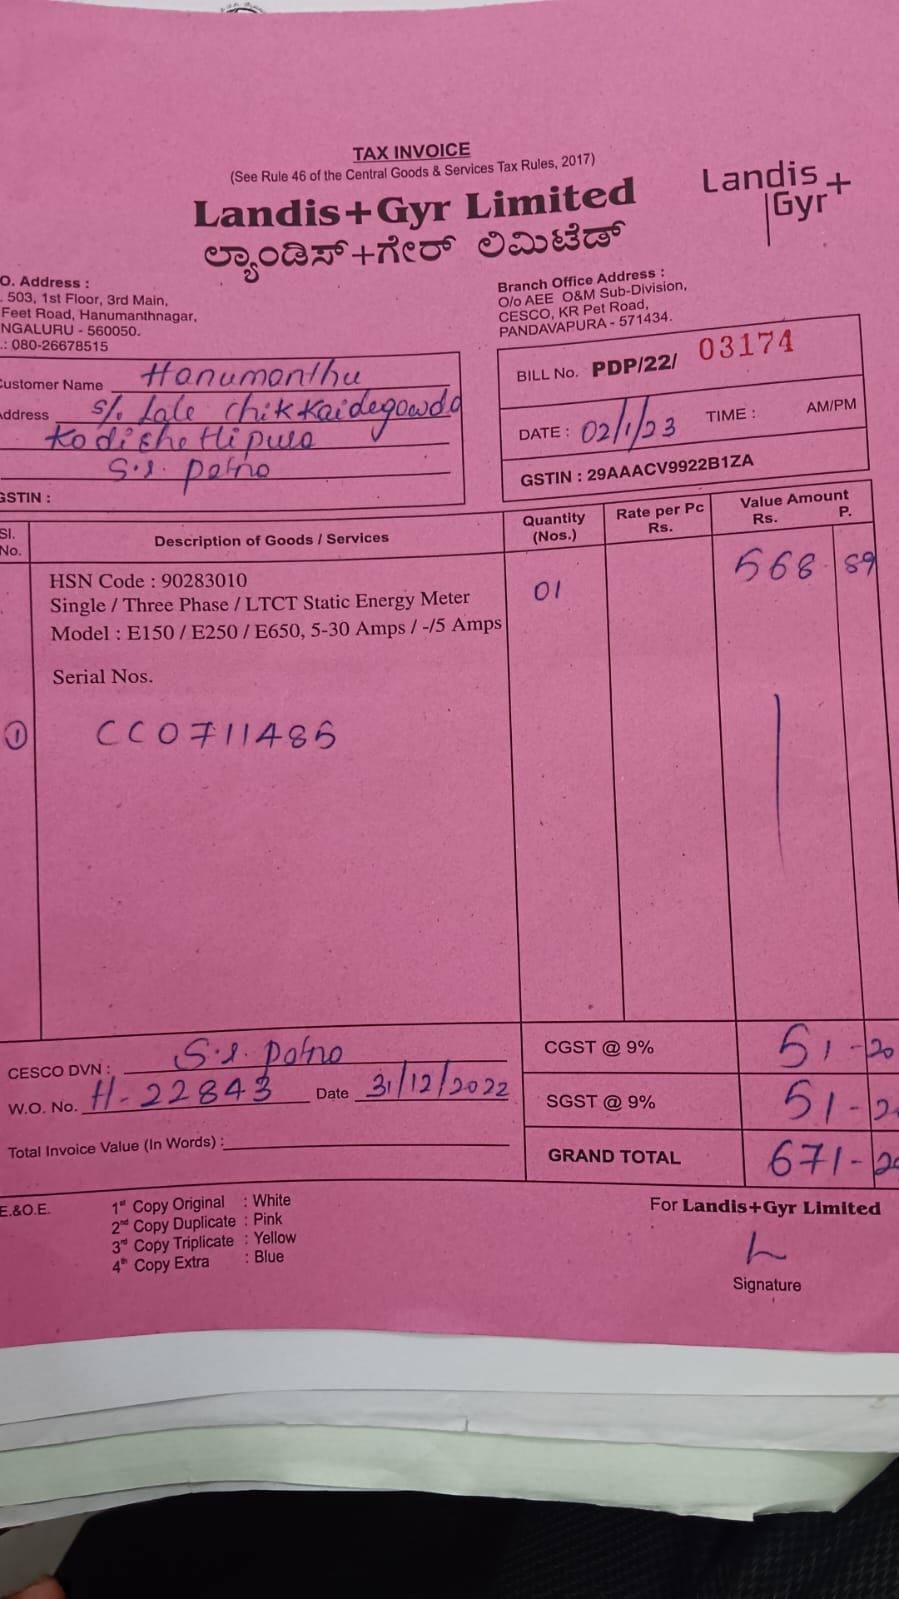 TAX INVOICE
(See Rule 46 of the Central Goods & Services Tax Rules, 2017)
Landis+Gyr Limited
Landis
Gyr+
ಲ್ಯಾಂಡಿಸ್+ಗೇರ್ ಲಿಮಿಟೆಡ್
O. Address :
. 503, 1st Floor, 3rd Main,
Feet Road, Hanumanthnagar,
NGALURU - 560050.
.: 080-26678515
Branch Office Address :
O/o AEE O&M Sub-Division,
CESCO, KR Pet Road,
PANDAVAPURA - 571434.
ustomer Name Hanumanthu
ddress S/o Late Chikkaidegowda
Kodishettipura
S.s. Patna
GSTIN :
BILL No. PDP/22/ 03174
DATE : 02/1/23 TIME : AM/PM
GSTIN : 29AAACV9922B1ZA
Sl. No. Description of Goods / Services Quantity (Nos.) Rate per Pc Rs. Value Amount Rs. P.
HSN Code : 90283010 01 568 89
Single / Three Phase / LTCT Static Energy Meter
Model : E150 / E250 / E650, 5-30 Amps / -/5 Amps
Serial Nos.
① CC0711485
CESCO DVN : S.s. Patna
W.O. No. H-22843 Date 31/12/2022
Total Invoice Value (In Words) :
CGST @ 9% 51-20
SGST @ 9% 51-2
GRAND TOTAL 671-20
E.&O.E.
1st Copy Original : White
2nd Copy Duplicate : Pink
3rd Copy Triplicate : Yellow
4th Copy Extra : Blue
For Landis+Gyr Limited
Signature